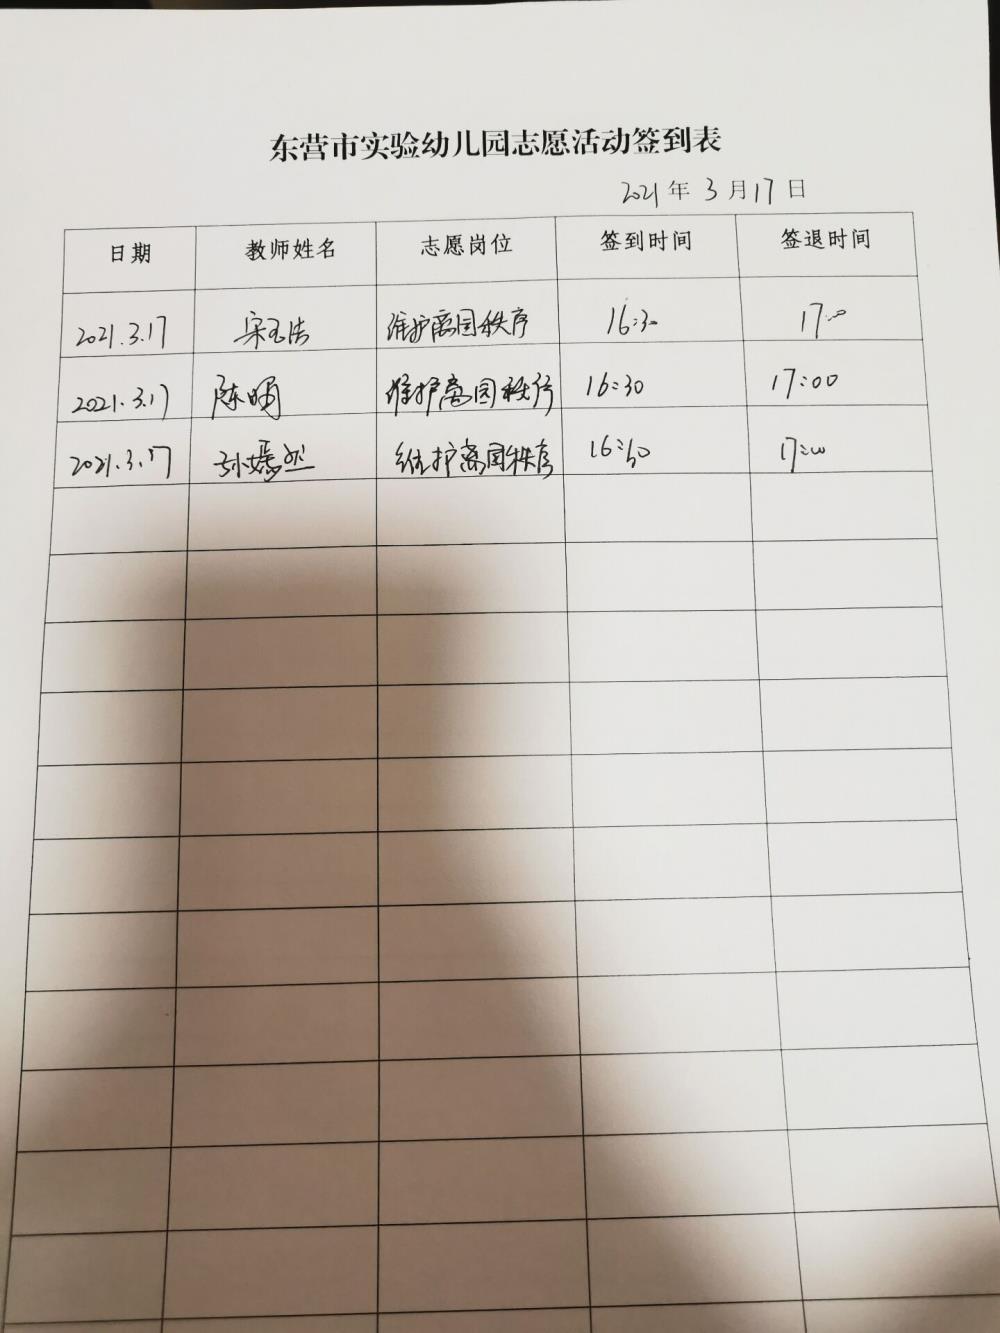 东营市实验幼儿园志愿活动签到表
2021年3月17日
日期 教师姓名 志愿岗位 签到时间 签退时间
2021.3.17 宋玉洁 维护离园秩序 16:30 17:00
2021.3.17 陈明 维护离园秩序 16:30 17:00
2021.3.17 孙嫣然 维护离园秩序 17:00